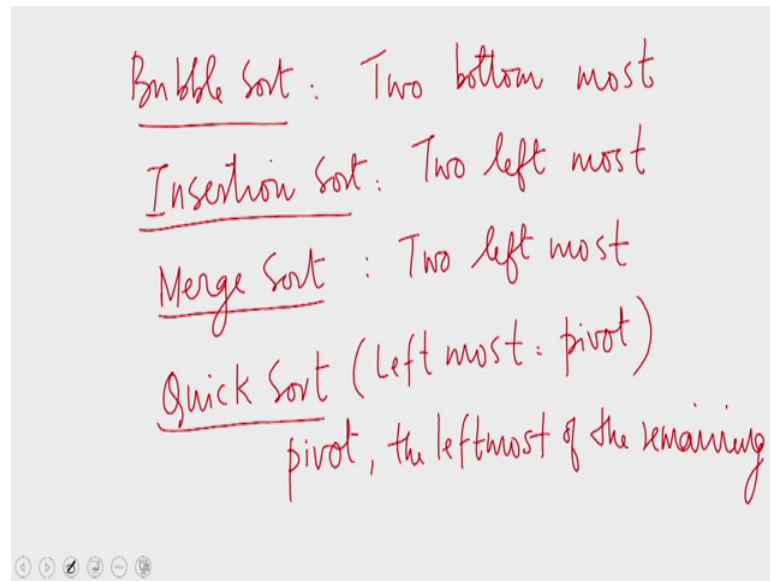 Bubble Sort : Two bottom most
Insertion Sort : Two left most
Merge Sort : Two left most
Quick Sort (Left most : pivot)
pivot, the leftmost of the remaining